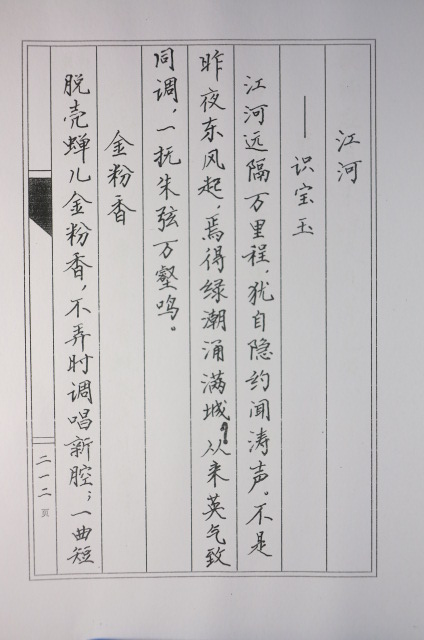 江河
——识宝玉
江河远隔万里程，犹自隐约闻涛声。不是
昨夜东风起，焉得绿潮涌满城？从来英气致
同调，一抚朱弦万壑鸣。
金粉香
脱壳蝉儿金粉香，不弄时调唱新腔；一曲短
二一二页